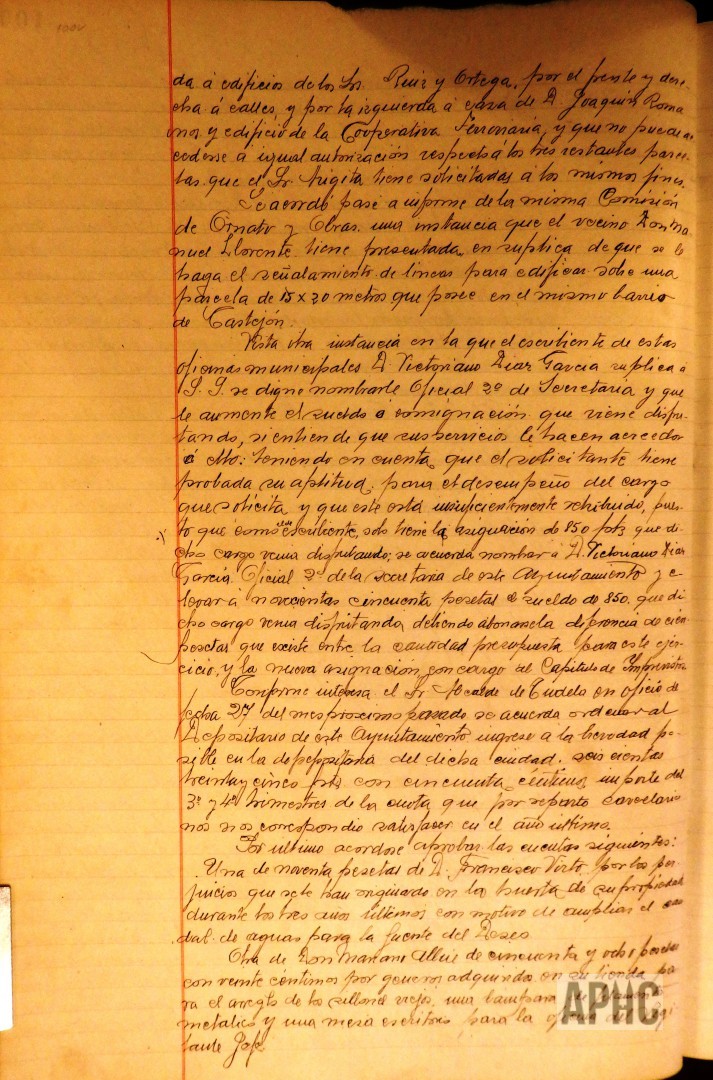 da á edificios de los Srs. Ruiz y Ortega, por el frente y dere-
cha á calles, y por la izquierda á casa de D. Joaquin Roma
nos y edificio de la Cooperativa Ferroviaria, y que no puede ac
cederse á igual autorización respecto á los tres restantes parce-
las que el Sr. tiene solicitadas á los mismos fines.
Se acordó pase a informe de la misma Comisión
de Ornato y Obras una instancia que el vecino Don Ma
nuel Llorente tiene presentada en suplica de que se le
haga el señalamiento de lineas para edificar sobre una
parcela de 15 x 20 metros que posee en el mismo barrio
de Castejón.
Vista otra instancia en la que el escribiente de estas
oficinas municipales D. Victoriano Diaz Garcia suplica á
S. S. se digne nombrarle Oficial 2º de Secretaria y que
le aumente el sueldo ó consignación que viene disfru-
tando, si entiende que sus servicios le hacen acreedor
á ello: teniendo en cuenta que el solicitante tiene
probada su aptitud para el desempeño del cargo
que solicita y que este está insuficientemente retribuido, pues-
to que como escribiente, solo tiene la asignación de 850 pts que di-
cho cargo venia disfrutando; se acuerda nombrar á D. Victoriano Diaz
Garcia Oficial 2º de la secretaria de este Ayuntamiento y e-
levar á novecientas cincuenta pesetas el sueldo de 850 que di
cho cargo venia disfrutando debiendo abonarse la diferencia de cien
pesetas que existe entre la cantidad presupuesta para este ejer-
cicio, y la nueva asignación con cargo al Capitulo de Imprevistos
Conforme interesa el Sr Alcalde de Tudela en oficio de
fecha 27 del mes proximo pasado se acuerda ordenar al
Depositario de este Ayuntamiento ingrese a la brevedad po-
sible en la depositaria del dicha ciudad, seis cientas
treinta y cinco pts con cincuenta céntimos importe del
3º y 4º trimestres de la cuota que por reparto carcelario
nos correspondio satisfacer en el año último.
Por último acordose aprobar las cuentas siguientes:
Una de noventa pesetas de D. Francisco Virto por los per
juicios que se le han originado en la huerta de su propiedad
durante los tres años últimos con motivo de ampliar el cau
dal de aguas para la fuente del
Otra de Don Mariano de cincuenta y ocho pesetas
con veinte céntimos por generos adquiridos en su tienda pa-
ra el arreglo de los sillones viejos, una lampara
metalico y una mesa escritorio para la oficina del
tante Jefe
APHC